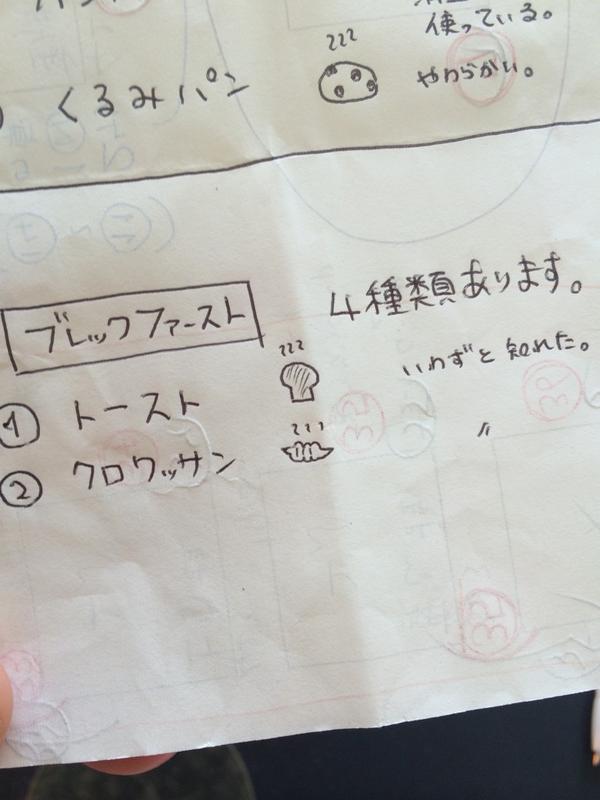 使っている。
くるみパン
やわらかい。
ブレックファースト
4種類あります。
① トースト
いわずと知れた。
② クロワッサン
〃